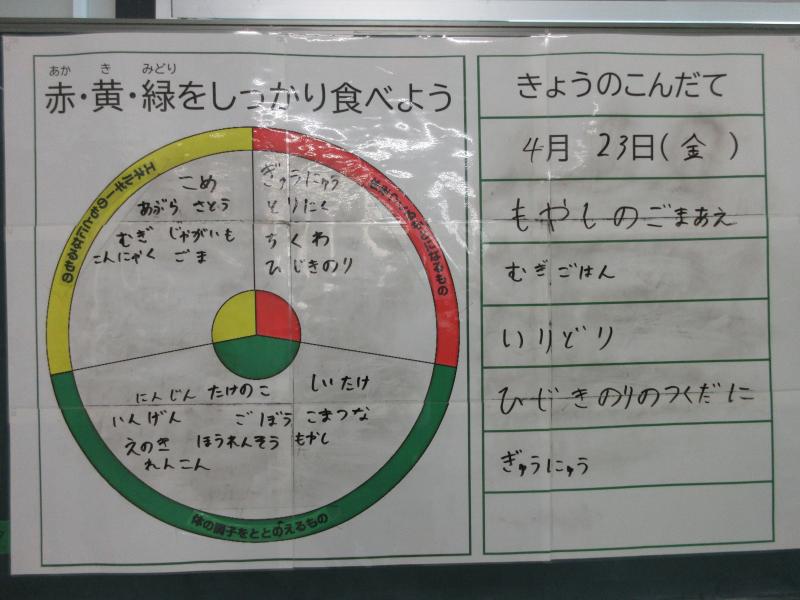 あか き みどり
赤・黄・緑をしっかり食べよう
エネルギーのもとになるもの
こめ
あぶら さとう
むぎ じゃがいも
こんにゃく ごま
ぎゅうにゅう
とりにく
ちくわ
ひじきのり
にんじん たけのこ しいたけ
いんげん ごぼう こまつな
えのき ほうれんそう もやし
れんこん
体の調子をととのえるもの
きょうのこんだて
4月 23日(金)
もやしのごまあえ
むぎごはん
いりどり
ひじきのりのつくだに
ぎゅうにゅう